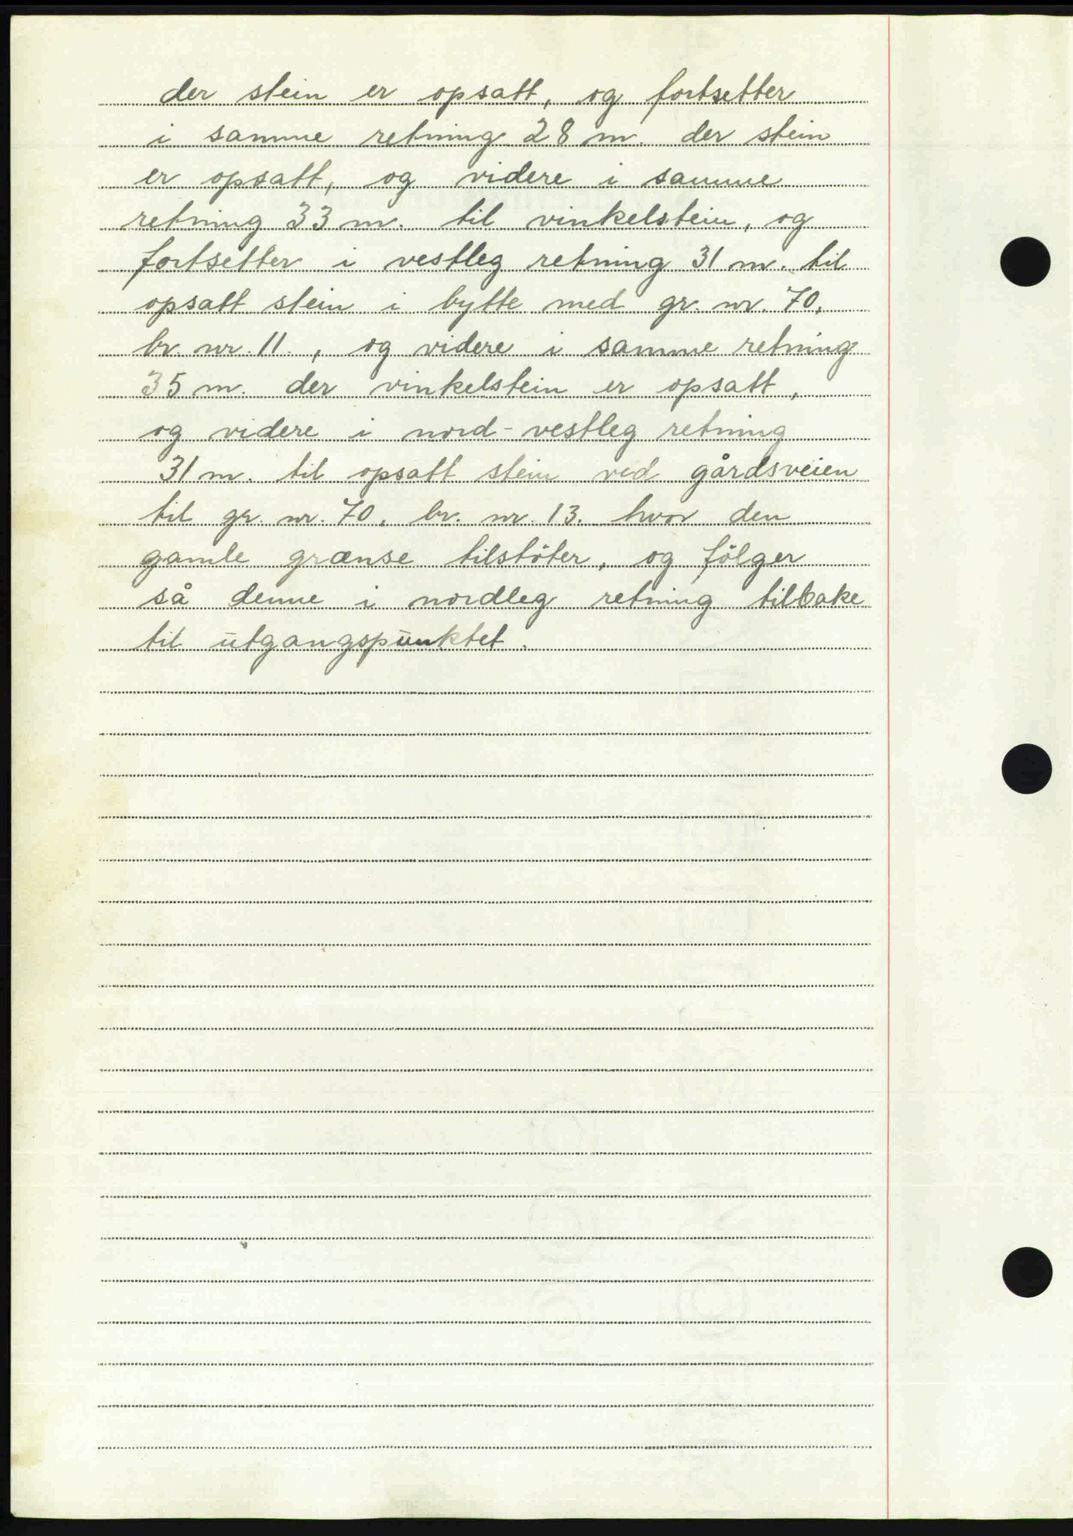 der stein er opsatt, og fortsetter
i samme retning 28 m. der stein
er opsatt, og videre i samme
retning 33 m. til vinkelstein, og
fortsetter i vestleg retning 31 m. til
opsatt stein i bytte med gr. nr. 70,
br. nr. 11. , og videre i samme retning
35 m. der vinkelstein er opsatt,
og videre i nord-vestleg retning
31 m. til opsatt stein ved gårdsveien
til gr. nr. 70, br. nr. 13. hvor den
gamle grænse tilstöter, og fölger
så denne i nordleg retning tilbake
til utgangspunktet.